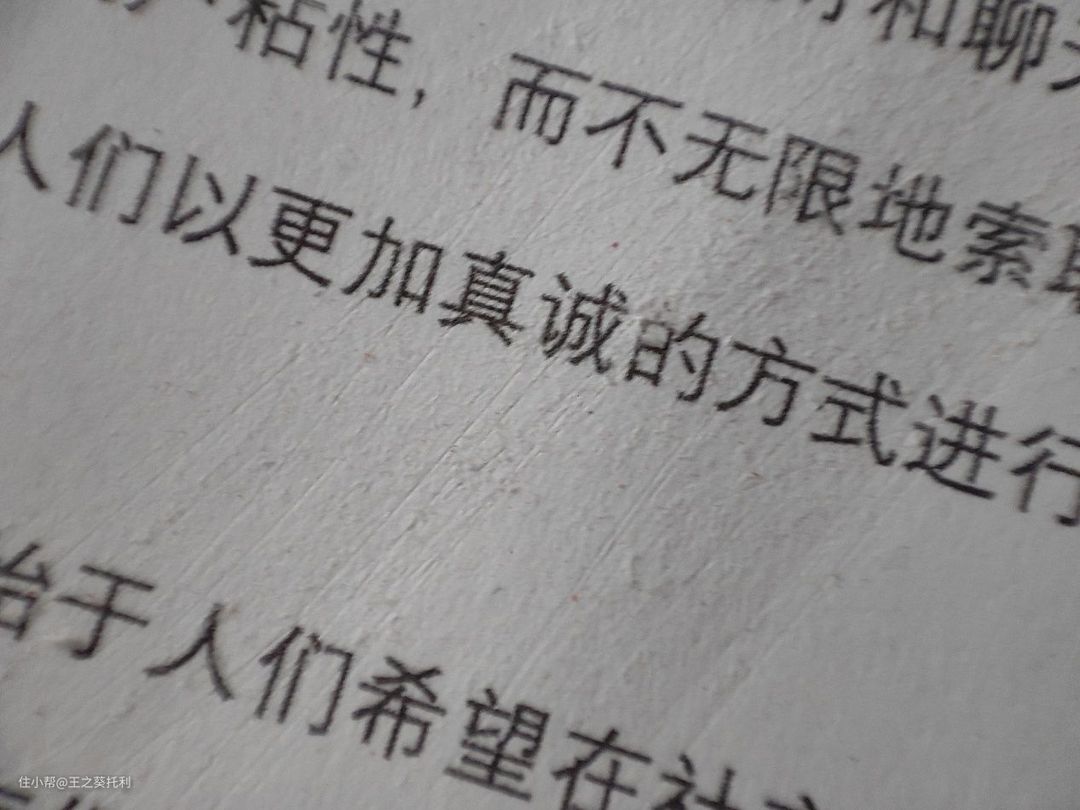 和聊
粘性，而不无限地索取
人们以更加真诚的方式进行
始于人们希望在社
住小帮@王之葵托利